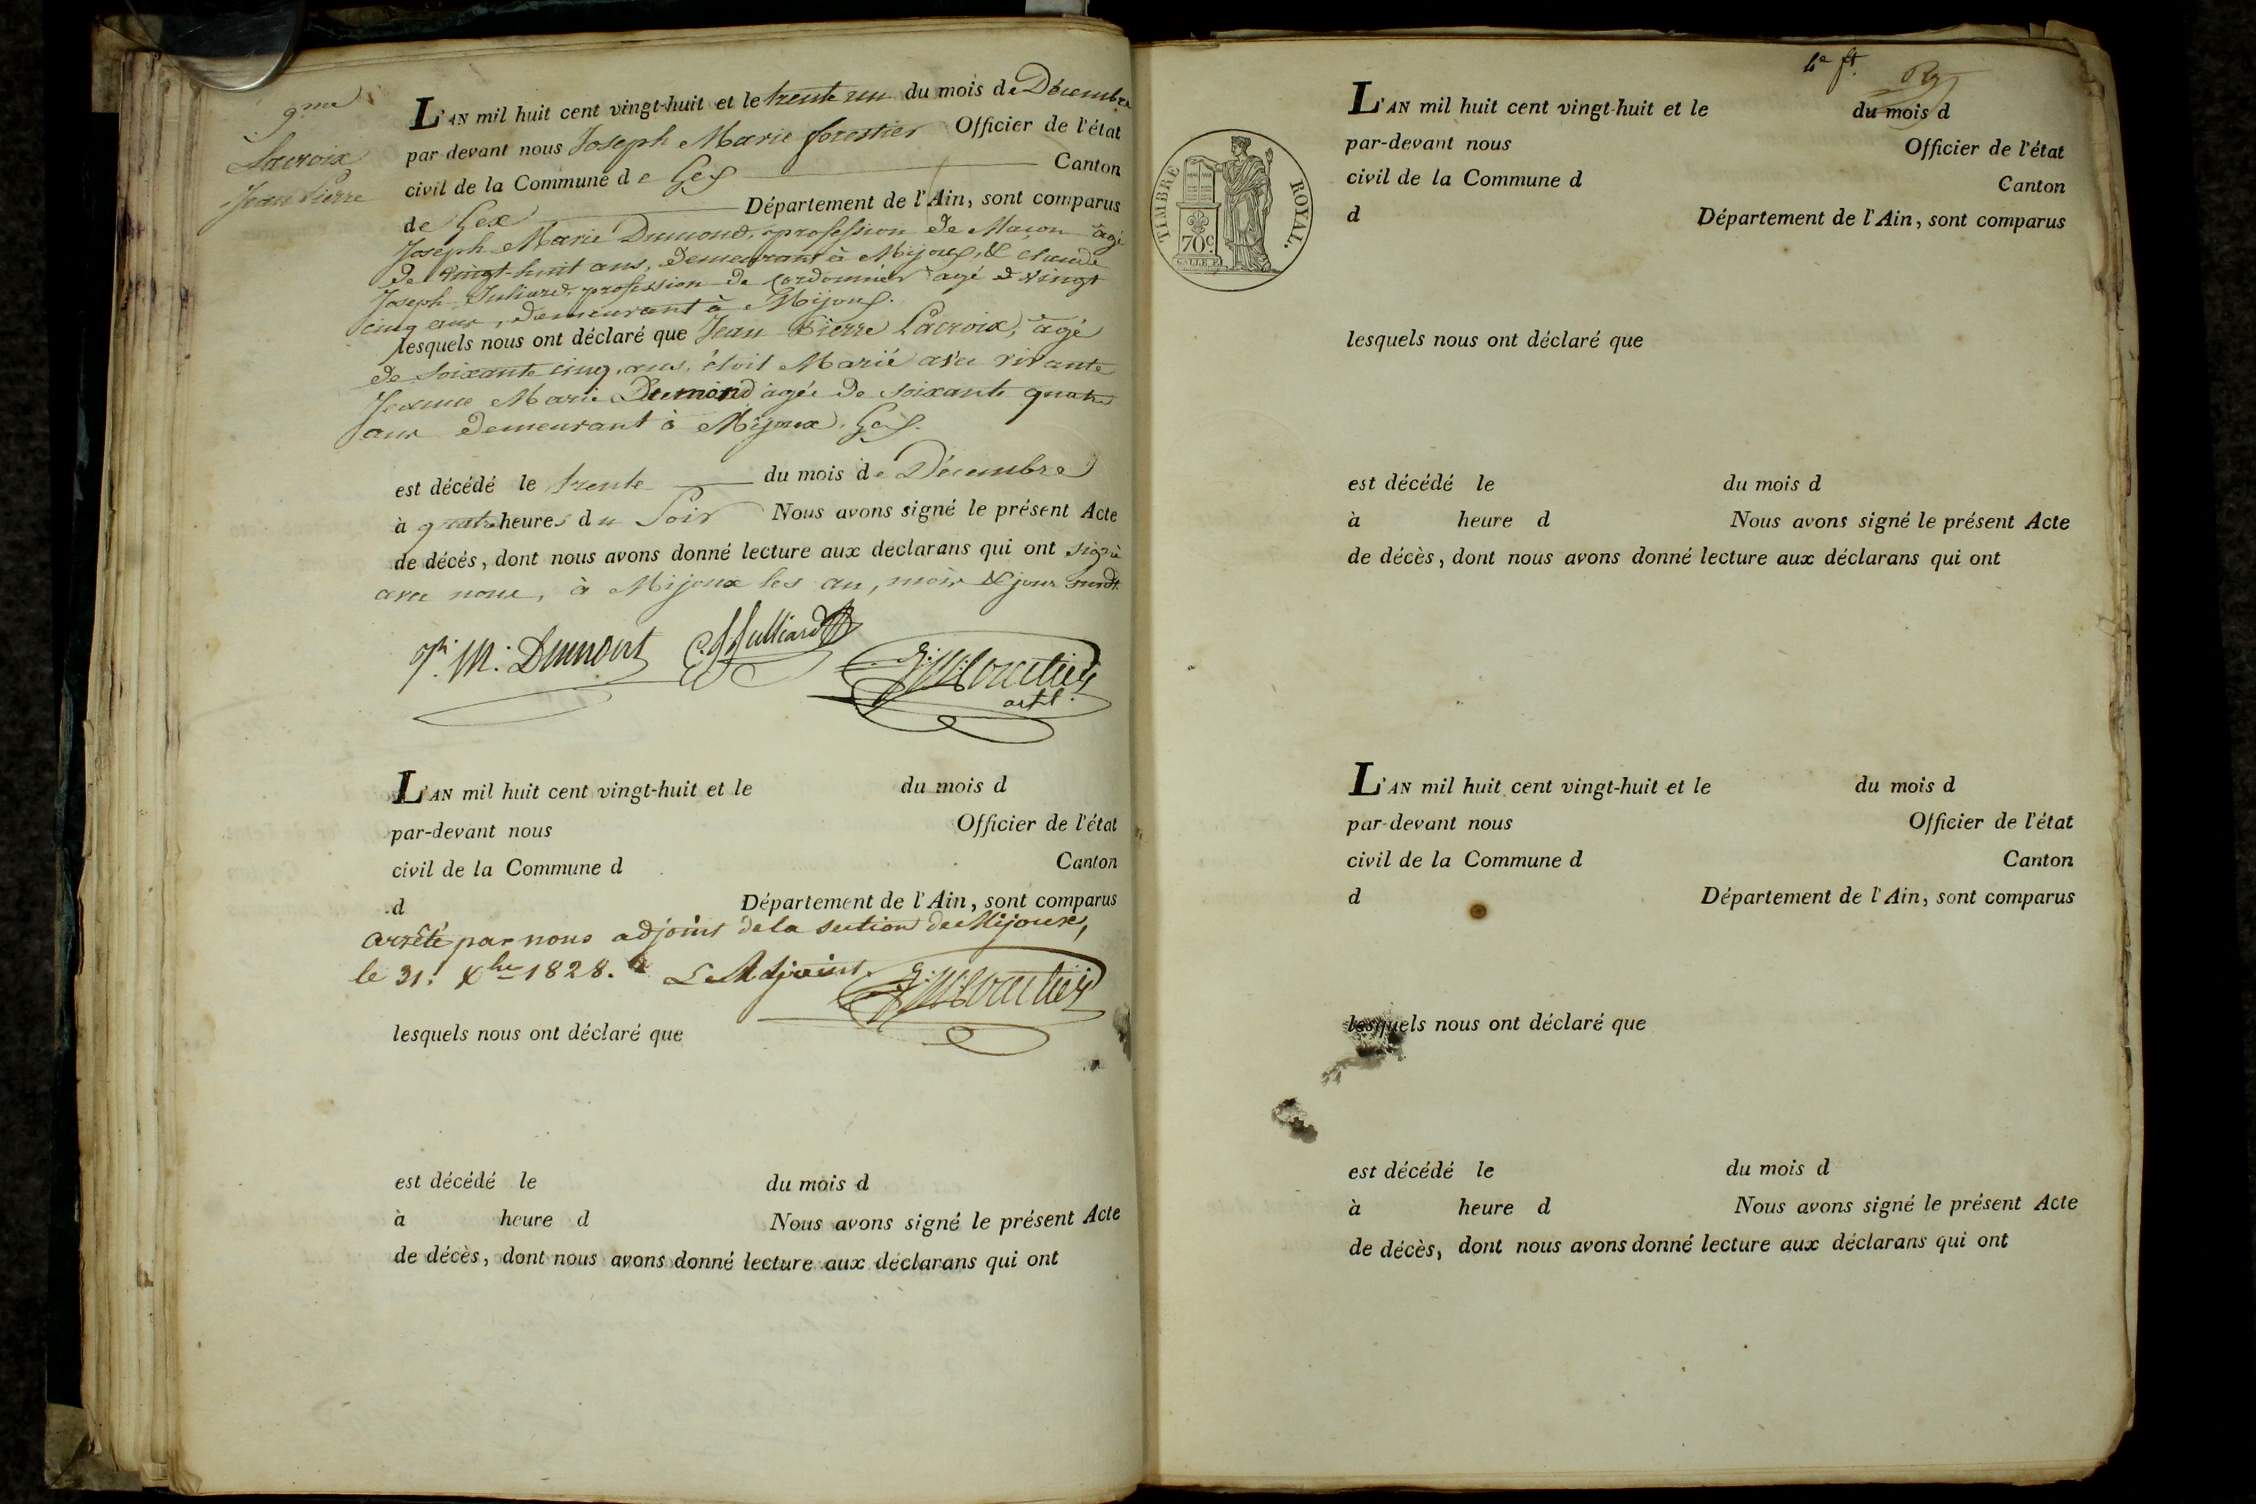 9me
Lacroix
Jean Pierre
L'AN mil huit cent vingt-huit et le trente un du mois de Décembre
par devant nous Joseph Marie forestier Officier de l'état
civil de la Commune de Gex Canton
de Gex Département de l'Ain, sont comparus
Joseph Marie Dumond, profession de Maçon agé
de vingt-huit ans, demeurant à Mijoux, & claude
Joseph Juliard, profession de Cordonnier agé de vingt
cinq ans, demeurant à Mijoux.
lesquels nous ont déclaré que Jean Pierre Lacroix, âgé
de soixante cinq ans, étoit Marié avec vivante
Jeanne Marie Dumond agée de soixante quatre
ans demeurant à Mijoux, Gex.
est décédé le trente du mois de Décembre
à quatre heures du Soir Nous avons signé le présent Acte
de décés, dont nous avons donné lecture aux declarans qui ont signé
avec nous, à Mijoux les an, mois & jour susdt.
Jh M: Dumont C J Julliard
adt.
L'AN mil huit cent vingt-huit et le du mois d
par-devant nous Officier de l'état
civil de la Commune d Canton
d Département de l'Ain, sont comparus
arrêté par nous adjoint de la section de Mijoux,
le 31. Xbre 1828. Le Adjoint.
lesquels nous ont déclaré que
est décédé le du mois d
à heure d Nous avons signé le présent Acte
de décès, dont nous avons donné lecture aux déclarans qui ont
4e ft.
TIMBRE ROYAL.
70c.
L'AN mil huit cent vingt-huit et le du mois d
par-devant nous Officier de l'état
civil de la Commune d Canton
d Département de l'Ain, sont comparus
lesquels nous ont déclaré que
est décédé le du mois d
à heure d Nous avons signé le présent Acte
de décès, dont nous avons donné lecture aux déclarans qui ont
L'AN mil huit cent vingt-huit et le du mois d
par-devant nous Officier de l'état
civil de la Commune d Canton
d Département de l'Ain, sont comparus
lesquels nous ont déclaré que
est décédé le du mois d
à heure d Nous avons signé le présent Acte
de décès, dont nous avons donné lecture aux déclarans qui ont